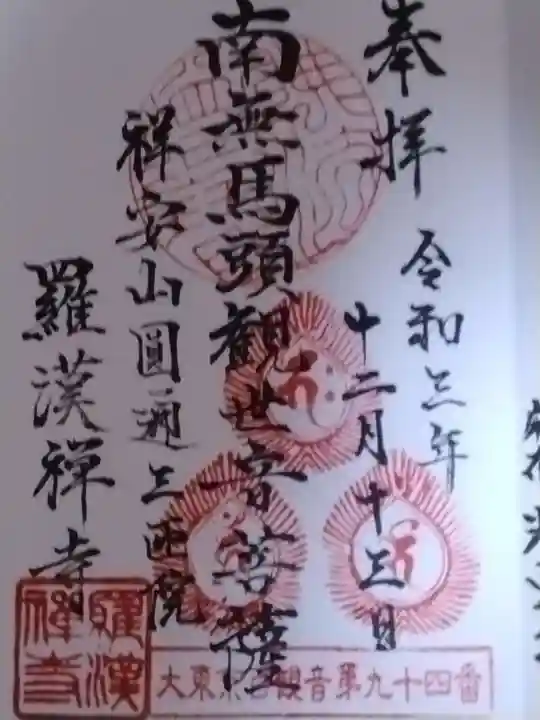 奉拝
令和三年
十二月十三日
南無馬頭観世音菩薩
祥安山圓通三匝院
羅漢禅寺
羅漢禅寺
大東京百観音第九十四番